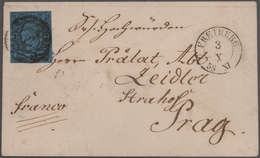 FREIBERG
3
X
Sr. Hochwürden
Herrn Prälat, Abt
Zeidler
Franco
Strahof
Prag.